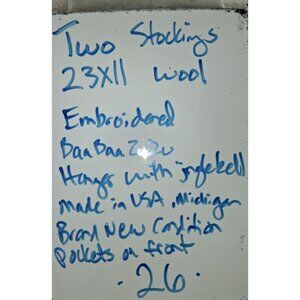 Two Stockings
23X11 wool
Embroidered
BaaBaaZuZu
Hanger with "jinglebell
made in USA, Michigan
Brand New Condition
pockets on front
· 26 ·